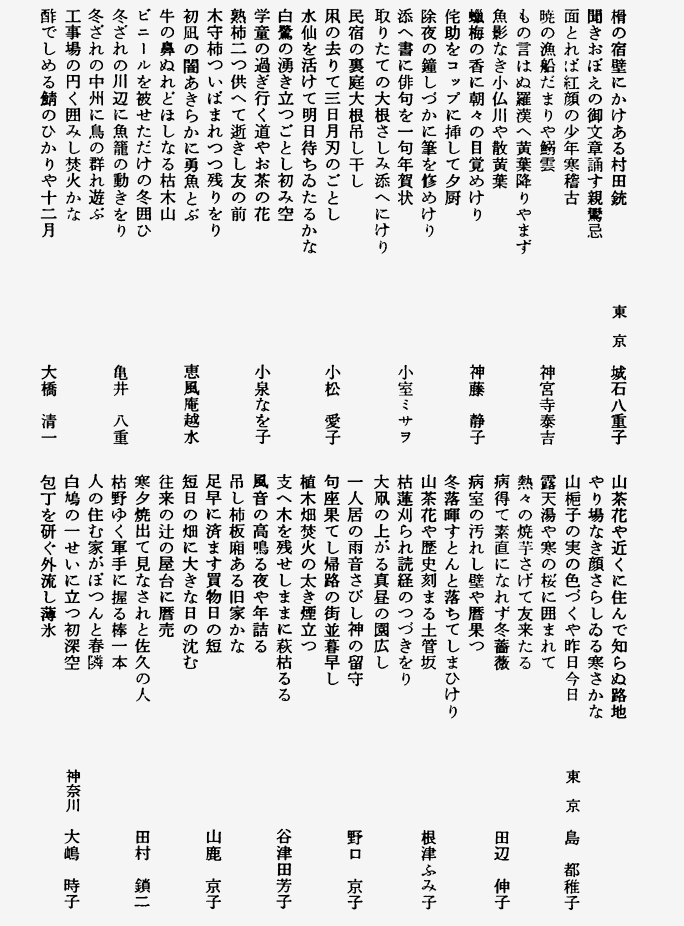 榾の宿壁にかけある村田銃
東京 城石八重子
聞きおぼえの御文章誦す親鸞忌
面とれば紅顔の少年寒稽古
暁の漁船だまりや鰯雲
神宮寺泰吉
もの言はぬ羅漢へ黄葉降りやまず
魚影なき小仏川や散黄葉
蠟梅の香に朝々の目覚めけり
神藤 静子
侘助をコップに挿して夕厨
除夜の鐘しづかに筆を修めけり
添へ書に俳句を一句年賀状
小室ミサヲ
取りたての大根さしみ添へにけり
民宿の裏庭大根吊し干し
凩の去りて三日月刃のごとし
小松 愛子
水仙を活けて明日待ちゐたるかな
白鷺の湧き立つごとし初み空
学童の過ぎ行く道やお茶の花
小泉なを子
熟柿二つ供へて逝きし友の前
木守柿ついばまれつつ残りをり
初凪の闇あきらかに勇魚とぶ
恵風庵越水
牛の鼻ぬれどほしなる枯木山
ビニールを被せただけの冬囲ひ
冬ざれの川辺に魚籠の動きをり
亀井 八重
冬ざれの中州に鳥の群れ遊ぶ
工事場の円く囲みし焚火かな
酢でしめる鯖のひかりや十二月
大橋 清一
山茶花や近くに住んで知らぬ路地
やり場なき顔さらしゐる寒さかな
山梔子の実の色づくや昨日今日
東京 島 都稚子
露天湯や寒の桜に囲まれて
熱々の焼芋さげて友来たる
病得て素直になれず冬薔薇
田辺 伸子
病室の汚れし壁や暦果つ
冬落暉すとんと落ちてしまひけり
山茶花や歴史刻まる土管坂
根津ふみ子
枯蓮刈られ読経のつづきをり
大凧の上がる真昼の園広し
一人居の雨音さびし神の留守
野口 京子
句座果てし帰路の街並暮早し
植木畑焚火の太き煙立つ
支へ木を残せしままに萩枯るる
谷津田芳子
風音の高鳴る夜や年詰る
吊し柿板廂ある旧家かな
足早に済ます買物日の短
山鹿 京子
短日の畑に大きな日の沈む
往来の辻の屋台に暦売
寒夕焼出て見なされと佐久の人
田村 鎖二
枯野ゆく軍手に握る棒一本
人の住む家がぽつんと春隣
白鳩の一せいに立つ初深空
神奈川 大嶋 時子
包丁を研ぐ外流し薄氷